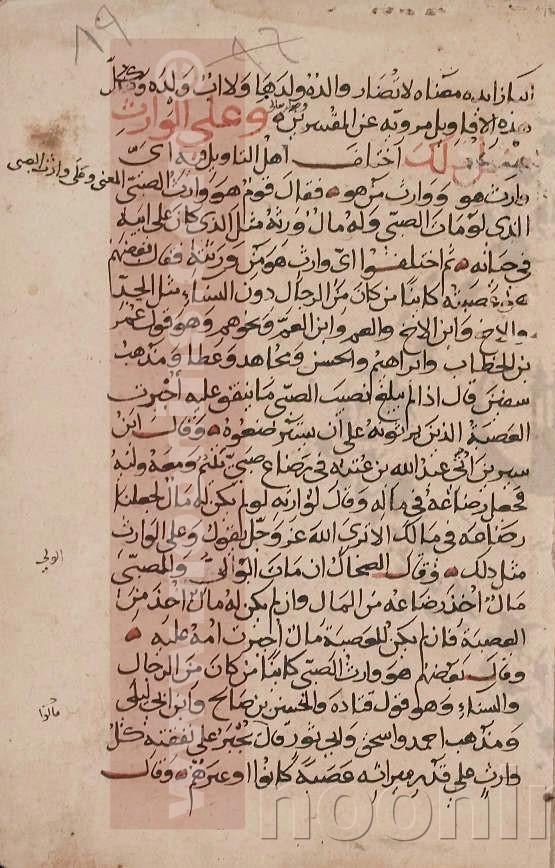 ٨٩ ٨٦
زايده معناه لا تضار والدة ولدها ولا اب ولده وكل
هذه الاقاويل مروية عن المفسرين قوله تعالى وعلى الوارث
مثل ذلك اختلف اهل التاويل فيه اي
المعنى وعلى وارث الصبي
وارث هو ووارث من هو فقال قوم هو وارث الصبي
الذي لو مات الصبي وله مال ورثه مثل الذي كان على ابيه
في حياته ثم اختلفوا اي وارث هو من ورثته فقال بعضهم
هو عصبته كائنا من كان من الرجال دون النساء مثل الجد
والاخ وابن الاخ والعم وابن العم ونحوهم وهو قول عمر
بن الخطاب وابراهيم والحسن ومجاهد وعطا ومذهب
سفين قال اذا لم يبلغ نصيب الصبي ما ينفق عليه اجبرت
العصبة الذين يرثونه على ان يسترضعوه وقال ابن
سيرين اتي عبد الله بن عتبة في رضاع صبي يتيم ومعه وليه
فجعل رضاعه في ماله وقال لوارثه لو لم يكن له مال لجعلنا
رضاعه في مالك الا ترى الله عز وجل يقول وعلى الوارث
الولي
مثل ذلك وقال الضحاك ان مات الوالي وللصبي
مال اخذ رضاعه من المال وان لم يكن له مال اخذ من
العصبة فان لم يكن للعصبة مال اجبرت امه عليه
وقال بعضهم هو وارث الصبي كائنا من كان من الرجال
والنساء وهو قول قتادة والحسن بن صالح وابن ابي ليلى
ومذهب احمد واسحق وابي ثور قالوا يجبر على نفقته كل
وارث على قدر ميراثه عصبة كانوا او غيرهم وقال
noonli